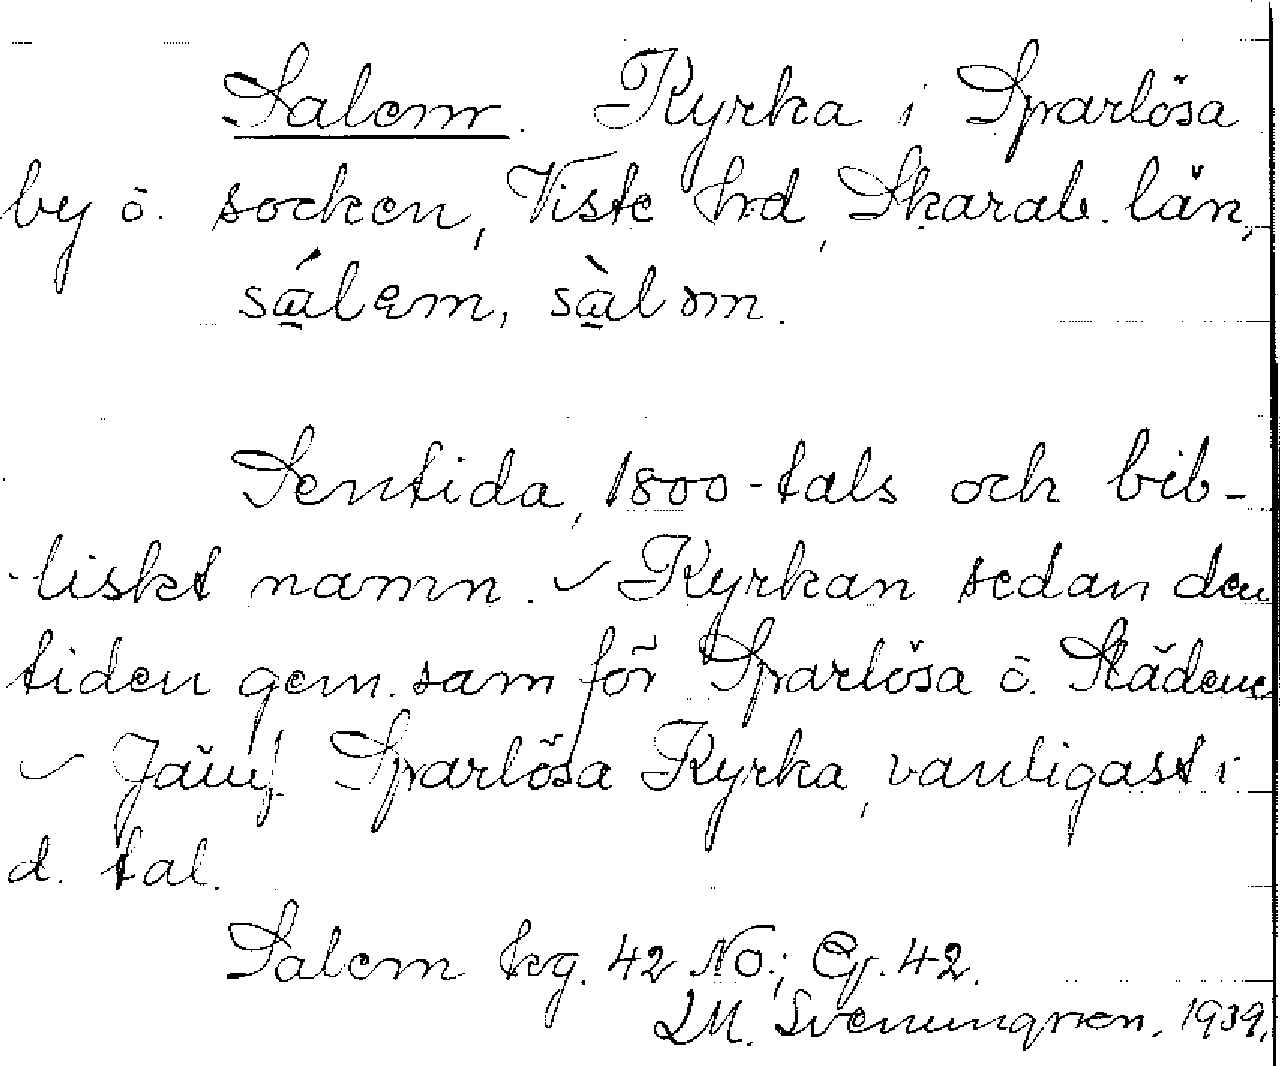 Salem. Kyrka i Sparlösa
by o. socken, Viste hrd, Skarab. län,
sálem, sàlom.
Sentida, 1800-tals och bib-
liskt namn. Kyrkan sedan den
tiden gem. sam för Sparlösa o. Slädene
Jämf. Sparlösa Kyrka, vanligast i
d. tal.
Salem kg. 42 NO; Eg. 42.
LM. Svenungsson, 1939.